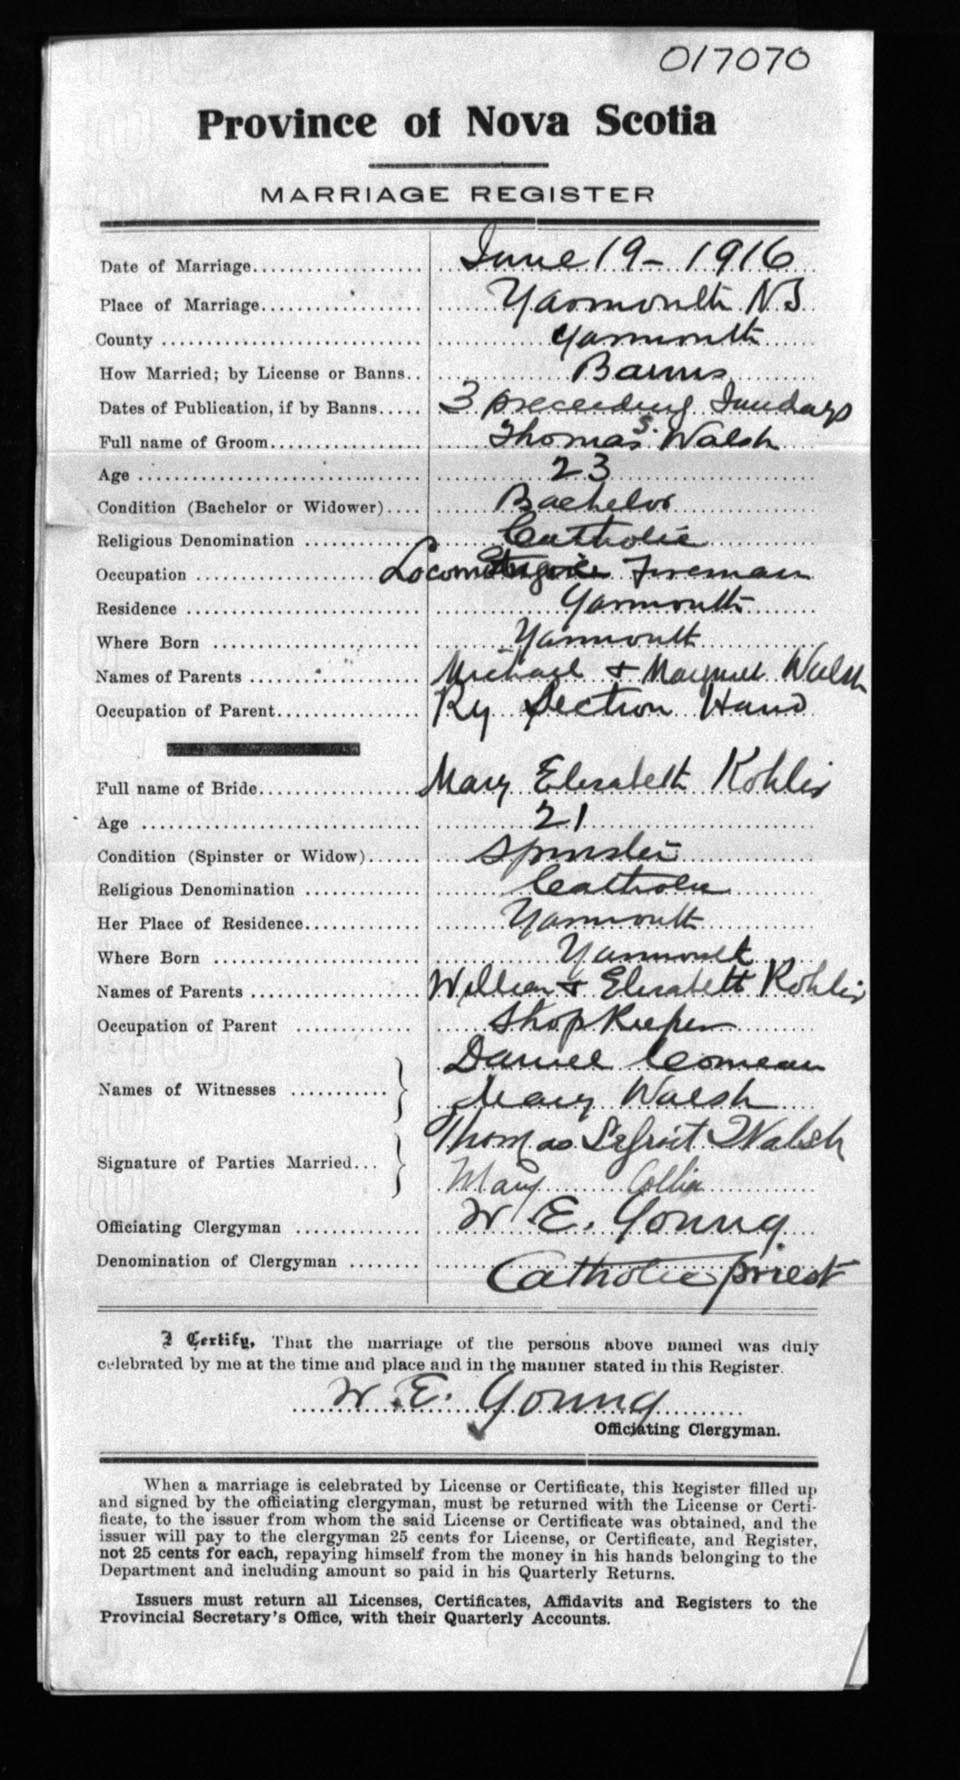 017070
Province of Nova Scotia
MARRIAGE REGISTER
Date of Marriage.................... June 19 - 1916
Place of Marriage.................... Yarmouth N.S
County .................... Yarmouth
How Married; by License or Banns.. Banns
Dates of Publication, if by Banns..... 3 preceeding Sundays
Full name of Groom.................... Thomas S. Walsh
Age .................... 23
Condition (Bachelor or Widower).... Bachelor
Religious Denomination .............. Catholic
Occupation .................... Locomotive Fireman
Residence .................... Yarmouth
Where Born .................... Yarmouth
Names of Parents .................... Michael + Margaret Walsh
Occupation of Parent................ Ry Section Hand
Full name of Bride.................... Mary Elizabeth Kohlis
Age .................... 21
Condition (Spinster or Widow)...... Spinster
Religious Denomination .............. Catholic
Her Place of Residence.............. Yarmouth
Where Born .................... Yarmouth
Names of Parents .................... William + Elizabeth Kohlis
Occupation of Parent .............. Shop Keeper
Daniel Comeau
Names of Witnesses ...........
Mary Walsh
Thomas Walsh
Signature of Parties Married...
Mary Collia
Officiating Clergyman .............. W. E. Young
Denomination of Clergyman ........ Catholic priest
I Certify, That the marriage of the persons above named was duly
celebrated by me at the time and place and in the manner stated in this Register.
W. E. Young
Officiating Clergyman.
When a marriage is celebrated by License or Certificate, this Register filled up
and signed by the officiating clergyman, must be returned with the License or Certi-
ficate, to the issuer from whom the said License or Certificate was obtained, and the
issuer will pay to the clergyman 25 cents for License, or Certificate, and Register,
not 25 cents for each, repaying himself from the money in his hands belonging to the
Department and including amount so paid in his Quarterly Returns.
Issuers must return all Licenses, Certificates, Affidavits and Registers to the
Provincial Secretary's Office, with their Quarterly Accounts.